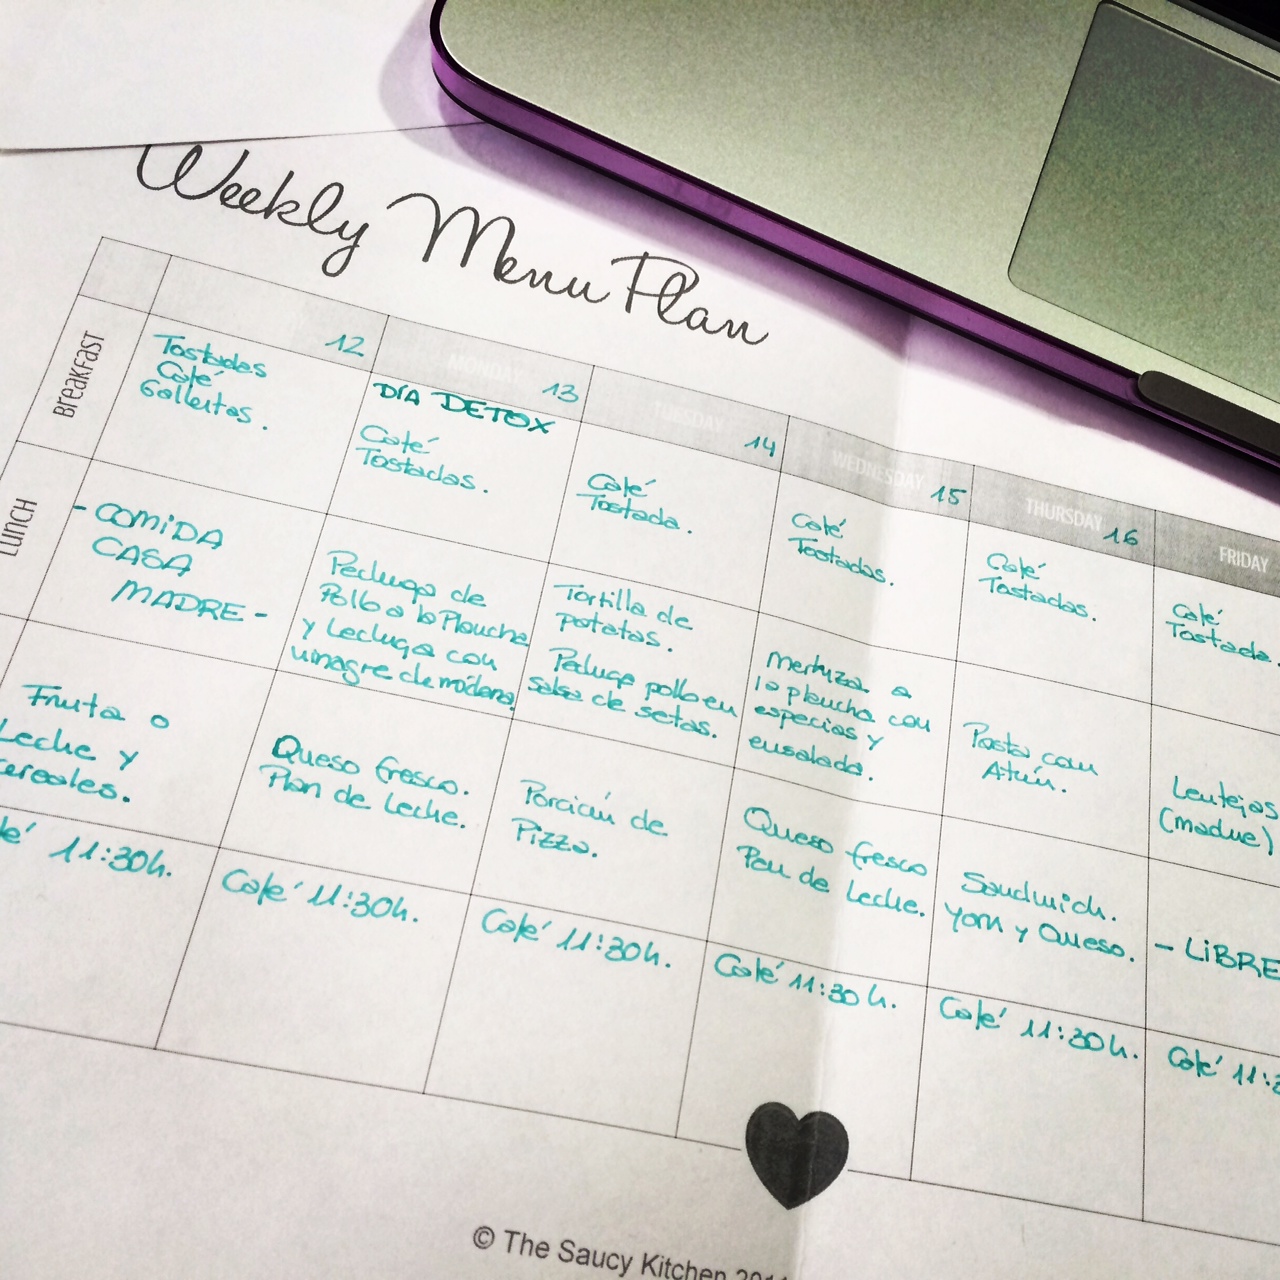 Weekly Menu Plan
12
MONDAY 13
TUESDAY 14
WEDNESDAY 15
THURSDAY 16
FRIDAY
Breakfast
Tostadas
Café
Galletas.
DÍA DETOX
Café
Tostadas.
Café
Tostada.
Café
Tostadas.
Café
Tostadas.
Café
Tostada.
Lunch
- COMIDA
CASA
MADRE -
Pechuga de
Pollo a la Plancha
y Lechuga con
vinagre de módena.
Tortilla de
patatas.
Pechuga pollo en
salsa de setas.
Merluza a
la plancha con
especias y
ensalada.
Pasta con
Atún.
Lentejas
(madre)
Fruta o
Leche y
cereales.
Queso fresco.
Plan de Leche.
Porción de
Pizza.
Queso fresco
Pan de Leche.
Sandwich.
York y Queso.
- LiBRE
11:30h.
Café 11:30h.
Café 11:30h.
Café 11:30h.
Café 11:30h.
Café
© The Saucy Kitchen